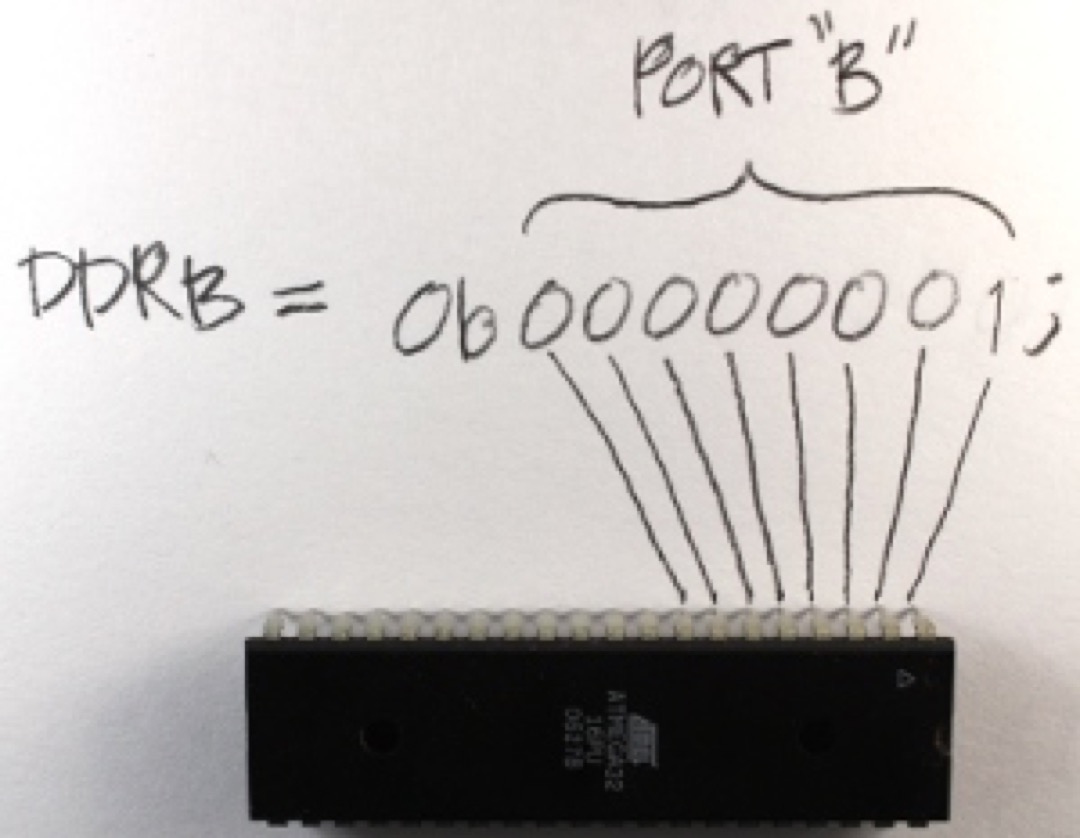 PORT "B"
DDRB = 0b00000001;
ATMEGA32
16PU